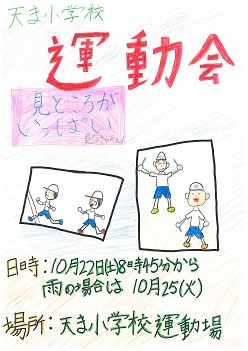 天ま小学校
運動会
見どころが
いっぱい
日時:10月22日(土)8時45分から
雨の場合は 10月25(火)
場所:天ま小学校運動場